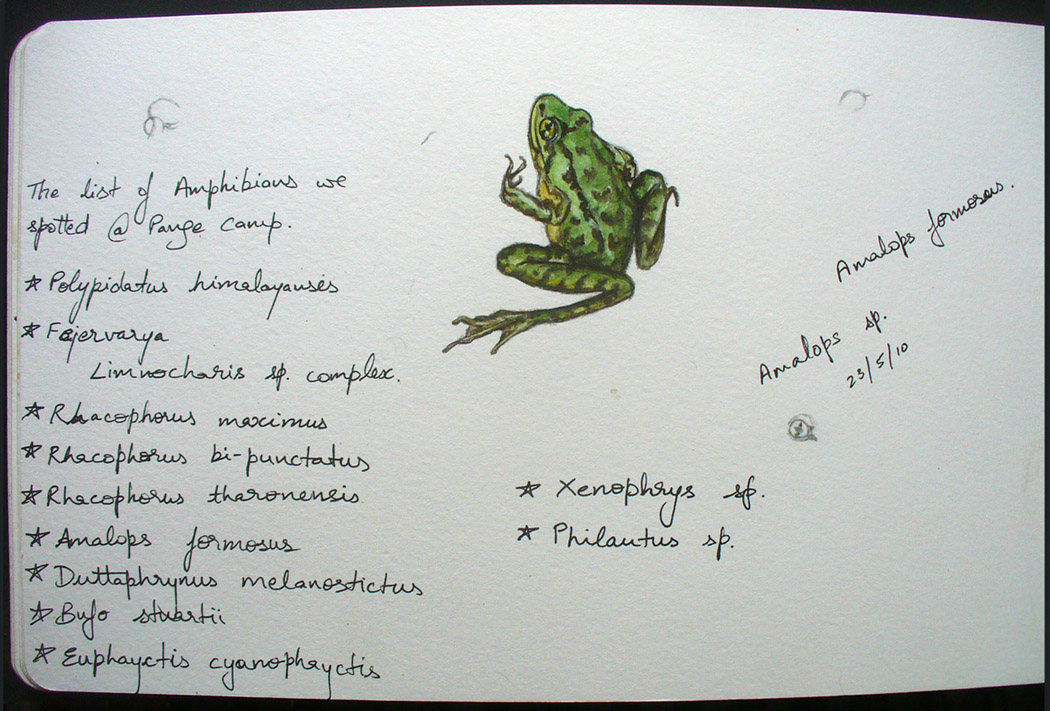 The list of Amphibians we
spotted @ Pange camp.
* Polypidatus himalayanses
* Fejervarya
Limnocharis sp. complex.
* Rhacophorus maximus
* Rhacophorus bi-punctatus
* Rhacophorus tharonensis
* Amalops formosus
* Duttaphrynus melanostictus
* Bufo stuartii
* Euphayctis cyanophayctis
Amalops formosus.
Amalops sp.
23/5/10
* Xenophrys sp.
* Philautus sp.